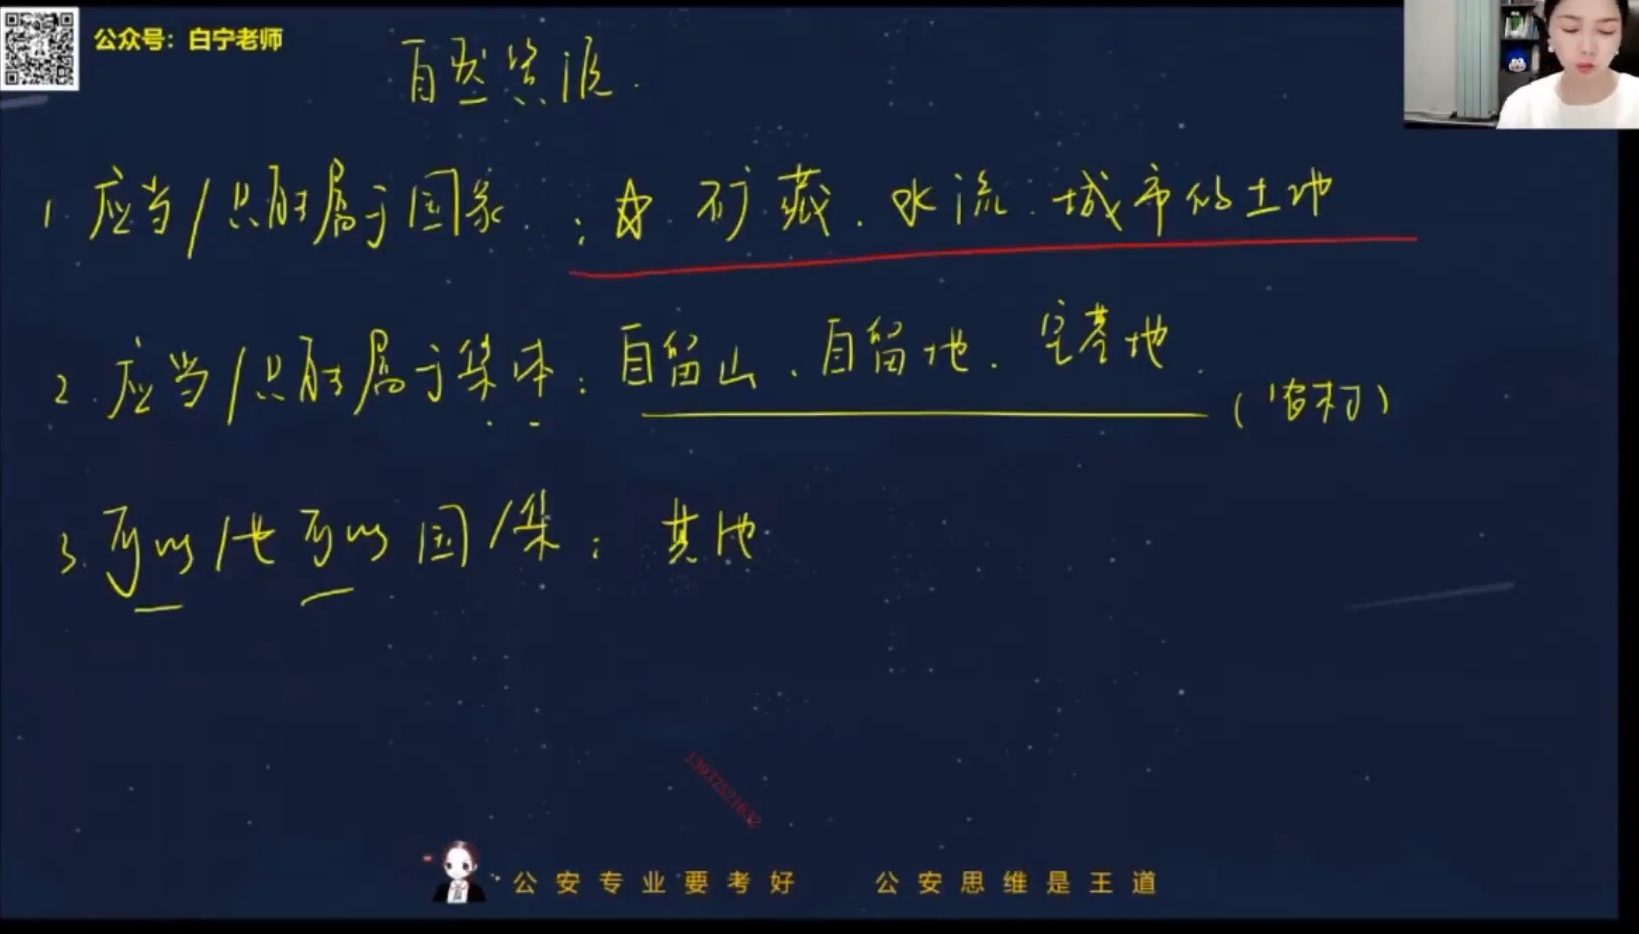 公众号：白宁老师
自然资源.
1. 应当/只能属于国家.：☆ 矿藏.水流.城市的土地
2. 应当/只能属于集体：自留山、自留地.宅基地.
（农村）
3. 可以/也可以国/集：其他
13937521632
公安专业要考好 公安思维是王道